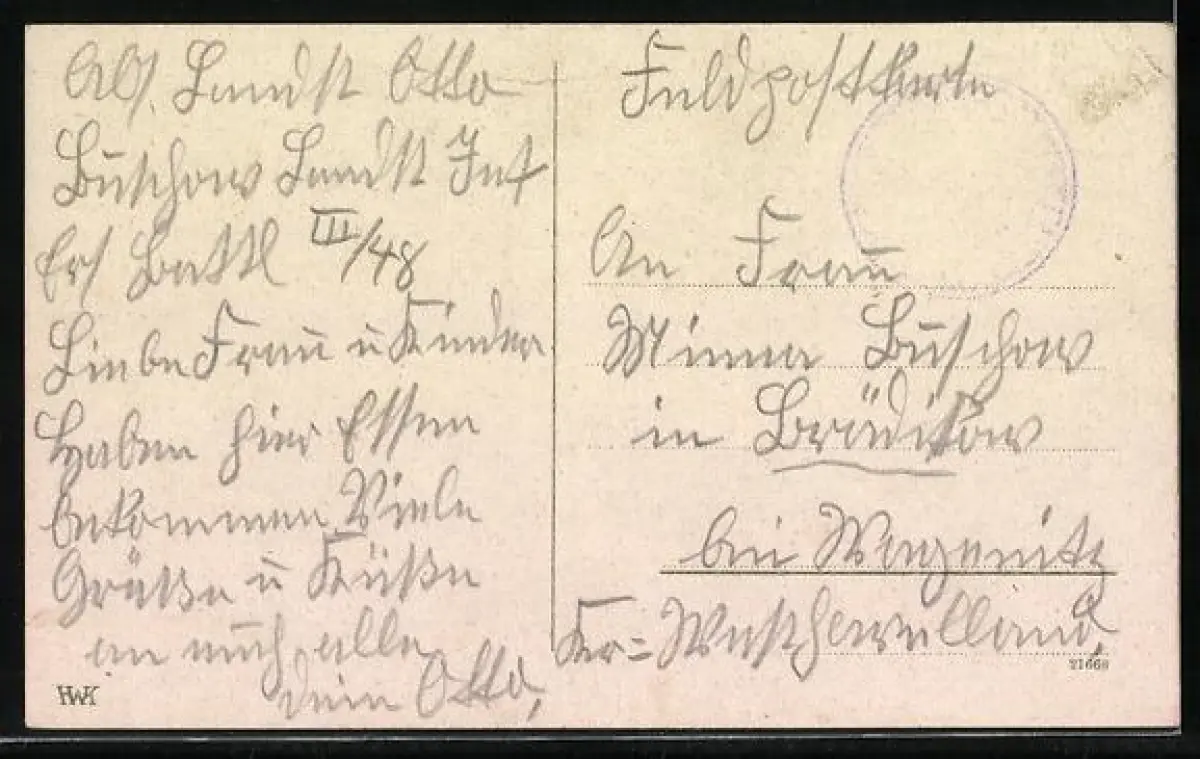 Abs. Landst Otto
Buschow Landst Inf
Ers Battl III/48
Liebe Frau u Kinder
Haben hier Essen
bekommen Viele
Grüße u Küße
an euch alle
dein Otto,
HWK
Feldpostkarte
An Frau
Minna Buschow
in Brädikow
bei Wagenitz
Kr= Westhavelland,
21668